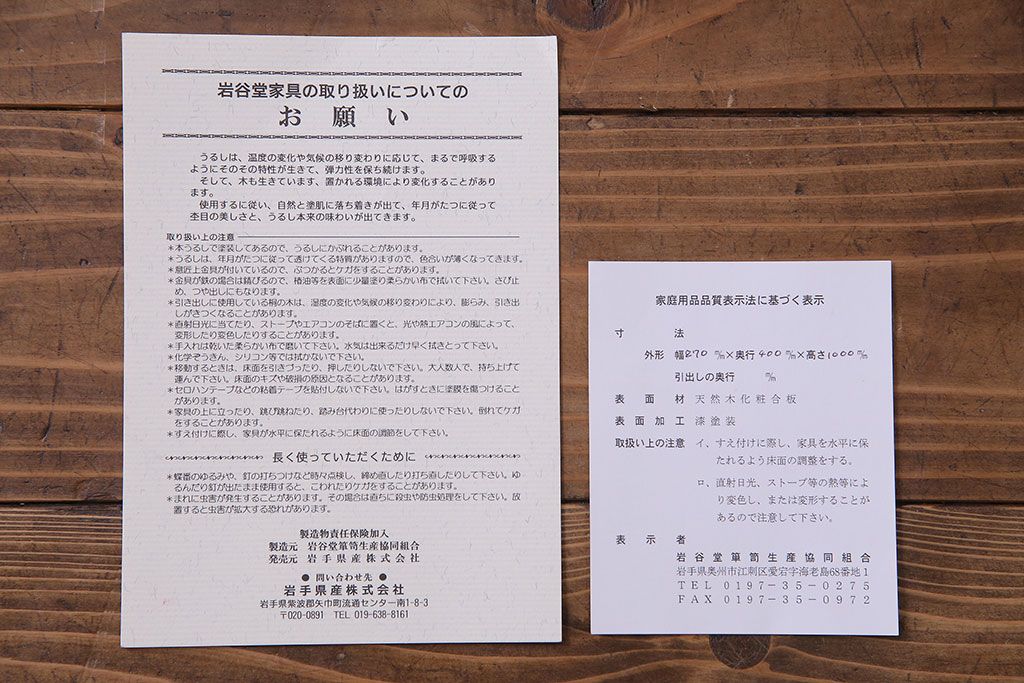 岩谷堂家具の取り扱いについての
お願い
うるしは、温度の変化や気候の移り変わりに応じて、まるで呼吸する
ようにそのその特性が生きて、弾力性を保ち続けます。
そして、木も生きています、置かれる環境により変化することがあり
ます。
使用するに従い、自然と塗肌に落ち着きが出て、年月がたつに従って
杢目の美しさと、うるし本来の味わいが出てきます。
取り扱い上の注意
＊本うるしで塗装してあるので、うるしにかぶれることがあります。
＊うるしは、年月がたつに従って透けてくる特質がありますので、色合いが薄くなってきます。
＊意匠上金具が付いているので、ぶつかるとケガをすることがあります。
＊金具が鉄の場合は錆びるので、椿油等を表面に少量塗り柔らかい布で拭いて下さい。さび止
め、つや出しにもなります。
＊引き出しに使用している桐の木は、湿度の変化や気候の移り変わりにより、膨らみ、引き出
しがきつくなることがあります。
＊直射日光に当てたり、ストーブやエアコンのそばに置くと、光や熱エアコンの風によって、
変形したり変色したりすることがあります。
＊手入れは乾いた柔らかい布で磨いて下さい。水気は出来るだけ早く拭きとって下さい。
＊化学ぞうきん、シリコン等では拭かないで下さい。
＊移動するときは、床面を引きづったり、押したりしないで下さい。大人数人で、持ち上げて
運んで下さい。床面のキズや破損の原因となることがあります。
＊セロハンテープなどの粘着テープを貼付しないで下さい。はがすときに塗膜を傷つけること
があります。
＊家具の上に立ったり、跳び跳ねたり、踏み台代わりに使ったりしないで下さい。倒れてケガ
をすることがあります。
＊すえ付けに際し、家具が水平に保たれるように床面の調節をして下さい。
長く使っていただくために
＊蝶番のゆるみや、釘の打ちつけなど時々点検し、締め直したり打ち直したりして下さい。ゆ
るんだり釘が出たまま使用すると、こわれたりケガをすることがあります。
＊まれに虫害が発生することがあります。その場合は直ちに殺虫や防虫処理をして下さい。放
置すると虫害が拡大する恐れがあります。
製造物責任保険加入
製造元　岩谷堂箪笥生産協同組合
発売元　岩手県産株式会社
● 問い合わせ先 ●
岩手県産株式会社
岩手県紫波郡矢巾町流通センター南1-8-3
〒020-0891　TEL 019-638-8161
家庭用品品質表示法に基づく表示
寸　　法
外形　幅270㎜×奥行400㎜×高さ1000㎜
引出しの奥行　　㎜
表面材　天然木化粧合板
表面加工　漆塗装
取扱い上の注意　イ、すえ付けに際し、家具を水平に保
たれるよう床面の調整をする。
ロ、直射日光、ストーブ等の熱等によ
り変色し、または変形することが
あるので注意して下さい。
表示者
岩谷堂箪笥生産協同組合
岩手県奥州市江刺区愛宕字海老島68番地1
TEL 0197-35-0275
FAX 0197-35-0972